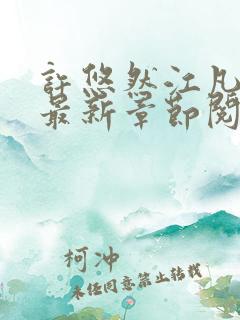 許悠然江凡
最新章節閱
柯冲
未经同意禁止转载